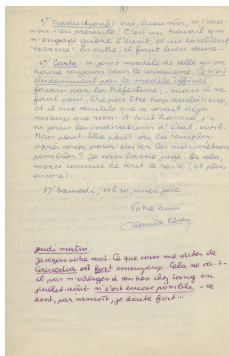 5°/ Traduction(s) : oui, bien sûr, si l'occa-
sion s'en présente. C'est un travail qui
m'engage guère l'esprit, et un excellent
"exercice". En outre, il faut bien vivre.
6°/ Carte, ci-joint modèle de celle qu'on
trouve toujours dans le commerce. Ce n'est
évidemment pas le modèle officiel
fourni par la Préfecture, mais il ne
faut peut-être pas être trop
et il me semble que ce serait déjà
mieux que rien. A tout hasard, j'y
ai joint les indications d'état-civil.
Mais peut-être peut-on la remplir
après coup, pour éviter les
possibles ? Je vous laisse juge. De cela,
merci comme de tout le reste (et plus
encore).
7°/ Samedi, 11 h 30, avec joie.
Votre ami
jeudi matin
Je reçois votre mot. Ce que vous me dites de
est fort ennuyeux. Cela ne va-t-
il pas m'obliger à rentrer chez Lang en
juillet-août si c'est encore possible - ce
dont, par instant, je doute fort...